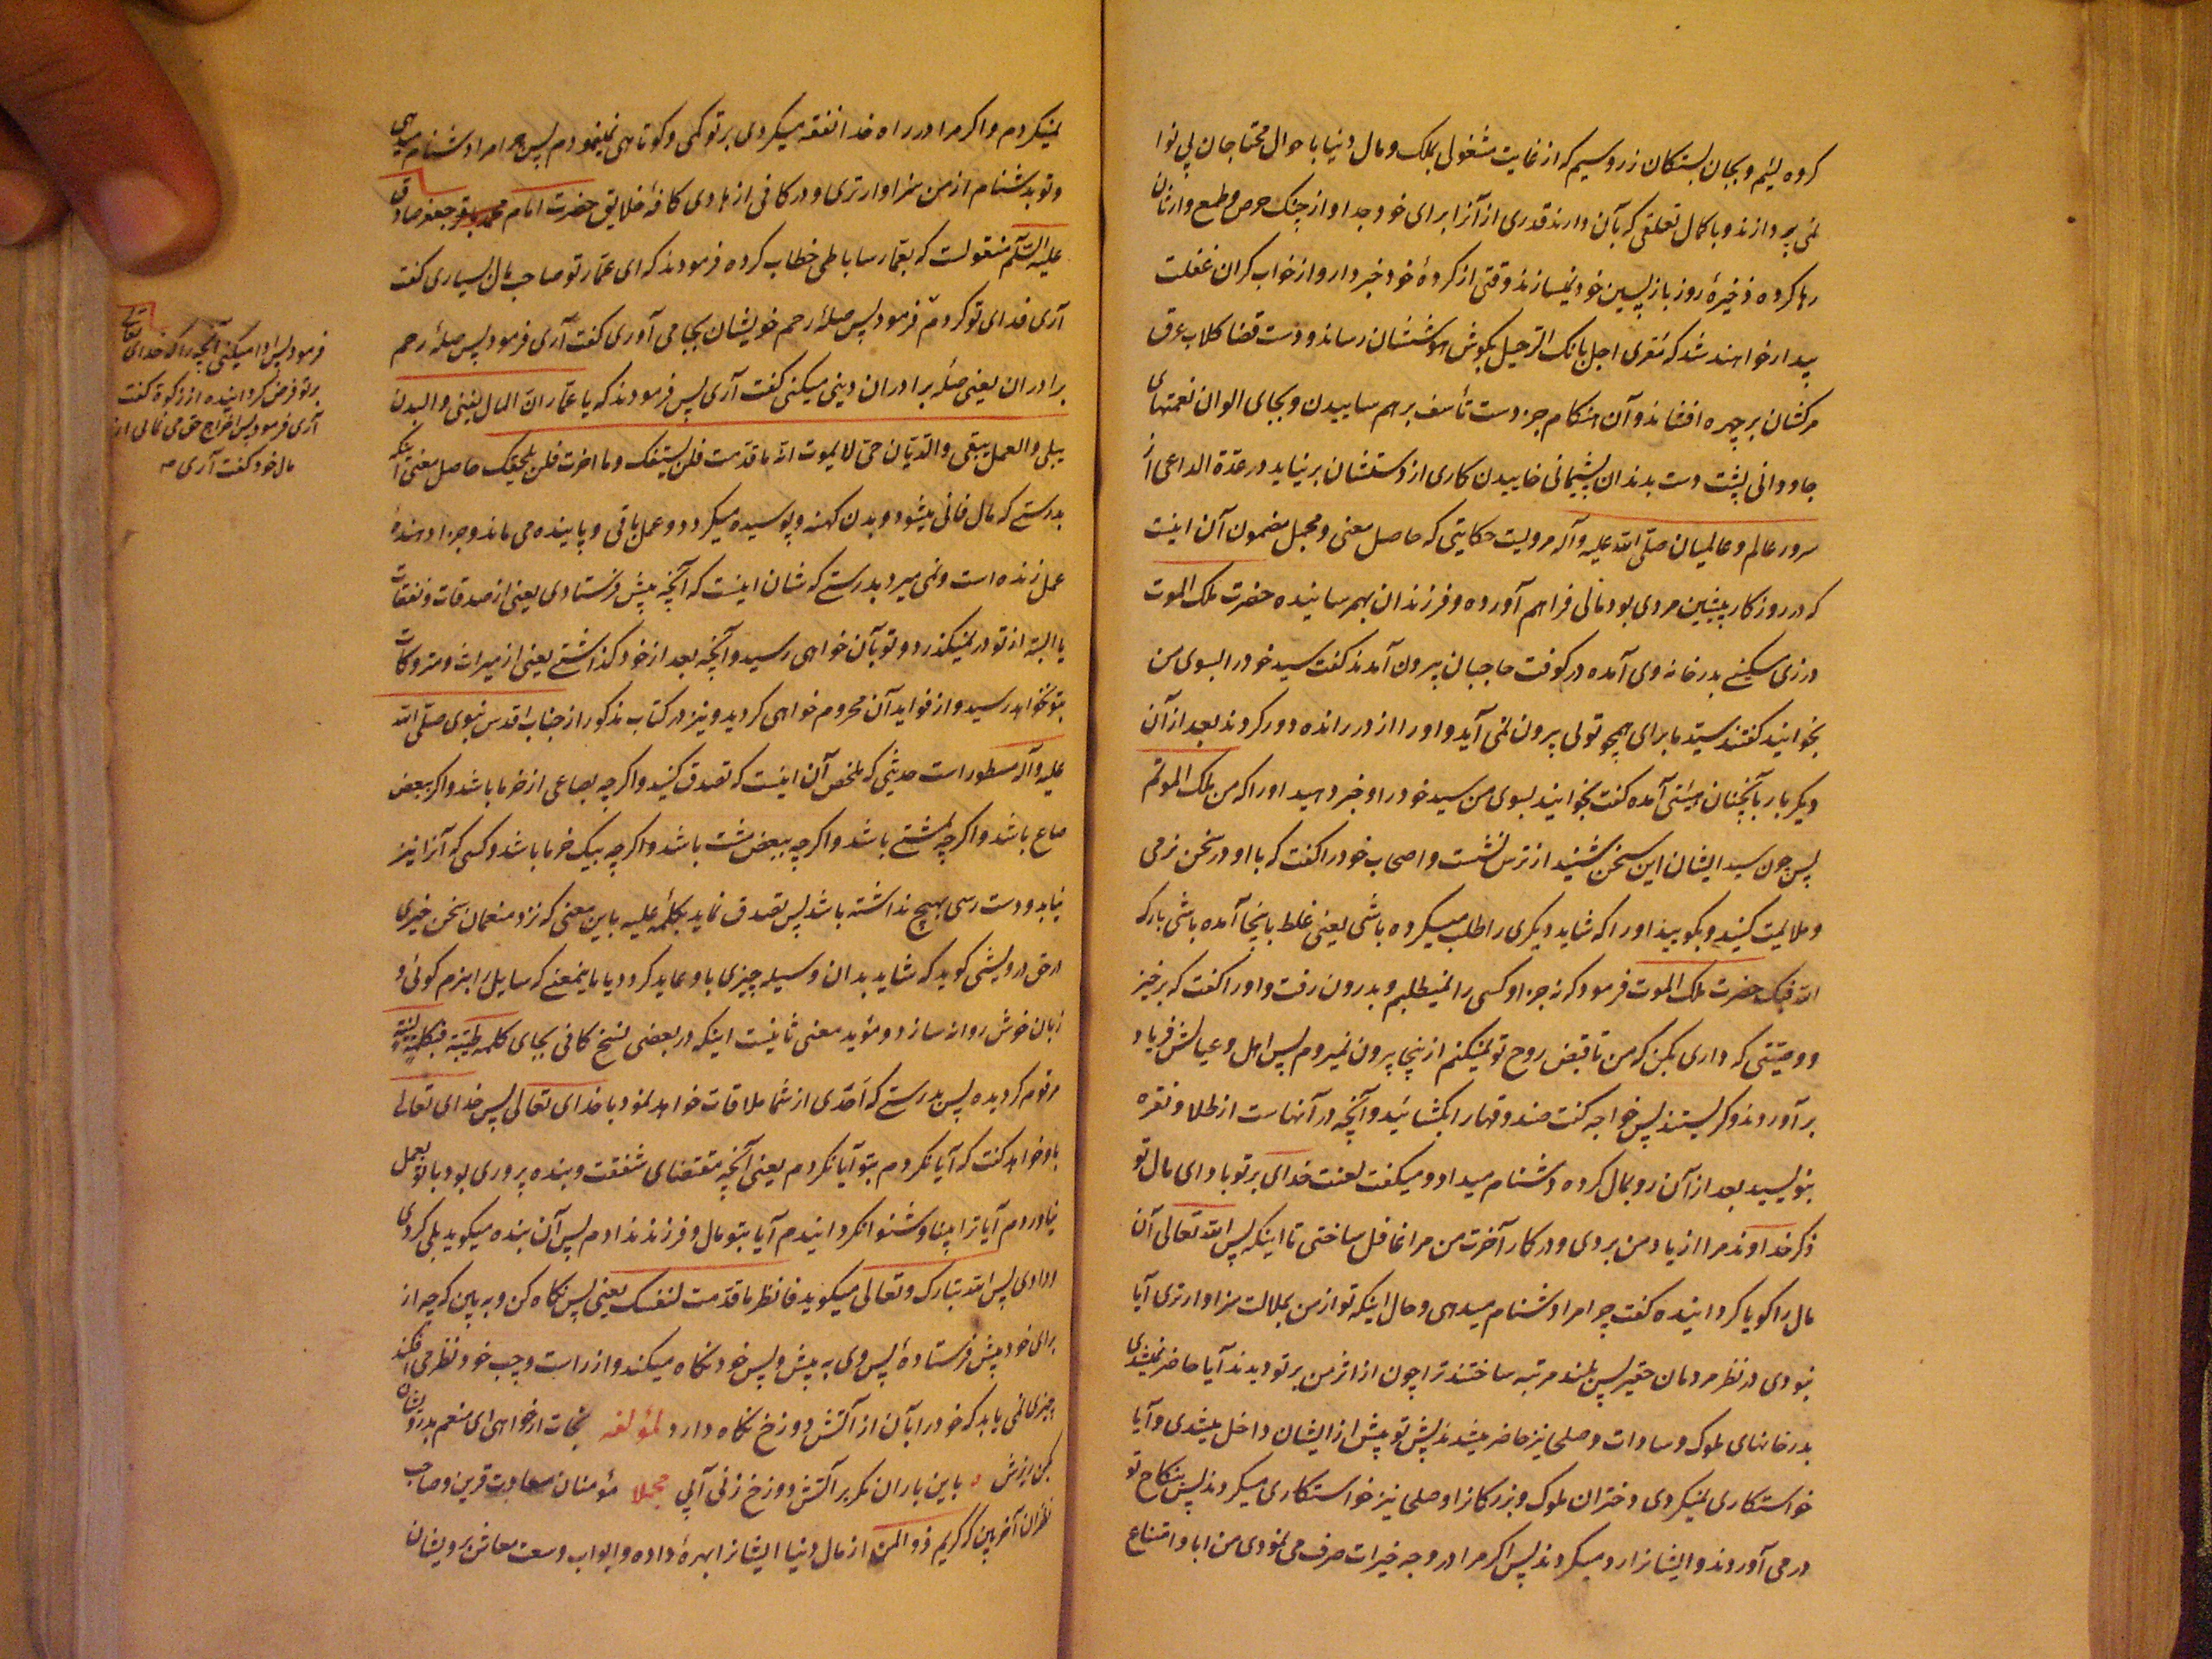 کروه لئیم و بجان بستکان زر و سیم که از غایت مشغولی بملک و مال دنیا باحوال محتاجان بی نوا
نمی پردازند و با کمال تعلقی که بآن دارند قدری از آنرا برای خود جدا و از چنک حرص و طمع وارثان
رها کرده ذخیرهٔ روز بازپسین خود نمیسازند وقتی از کردهٔ خود خبردار و از خواب کران غفلت
بیدار خواهند شد که مُقری اجل بانک الرحیل بکوش هوششان رساند و دست قضا کلاب عرق
مرکشان بر چهره افشاند و آن هنکام جز دست تأسف برهم ساییدن و بجای الوان نعمتهای
جاودانی پشت دست بدندان پشیمانی خاییدن کاری از دستشان برنیاید در عدّة الداعی از
سرور عالم و عالمیان صلّی الله علیه وآله مرویست حکایتی که حاصل معنی و مجمل مضمون آن اینست
که در روزکار پیشین مردی بود مالی فراهم آورده و فرزندان بهم رسانیده حضرت ملک الموت
در زی مسکینی بدر خانه وی آمده در کوفت حاجبان بیرون آمدند کفت سید خود را بسوی من
بخوانید کفتند سیّد ما برای همچو تویی بیرون نمی آید و او را از در رانده دور کردند بعد از آن
دیکر بار بآنچنان هیئتی آمده کفت بخوانید بسوی من سید خود را و خبر دهید او را که من ملک الموتم
پس چون سید ایشان این سخن شنید از ترس نشست و اصحاب خود را کفت که با او در سخن نرمی
و ملایمت کنید و بکویید او را که شاید دیکری را طلب میکرده باشی یعنی غلط باینجا آمده باشی بارک
الله فیک حضرت ملک الموت فرمود که نه جز او کسی را نمیطلبم و بدرون رفت و او را کفت که برخیز
و وصیّتی که داری بکن که من تا قبض روح تو نمیکنم از اینجا بیرون نمیروم پس اهل و عیالش فریاد
برآوردند و کریستند پس خواجه کفت صندوقها را بکشائید و آنچه در آنهاست از طلا و نقره
بنویسید بعد از آن رو بمال کرده دشنام میداد و میکفت لعنت خدای بر تو باد ای مال تو
ذکر خداوند مرا از یاد من بردی و در کار آخرت من مرا غافل ساختی تا اینکه پس الله تعالی آن
مال را کویا کردانیده کفت چرا مرا دشنام میدهی و حال اینکه تو از من بملالت سزاوارتری آیا
نبودی در نظر مردمان حقیر پس بلند مرتبه ساختند ترا چون از اثر من بر تو دیدند آیا حاضر نمیشدی
بدر خانهای ملوک و سادات و صلحا نیز حاضر میشدند پس تو پیش از ایشان داخل میشدی و آیا
خواستکاری نمیکردی دختران ملوک و بزرکانرا و صلحا نیز خواستکاری میکردند پس بنکاح تو
درمی آوردند و ایشانرا رد میکردند پس اکر مرا در وجه خیرات صرف می نمودی من ابا و امتناع
نمیکردم و اکر مرا در راه خدا نفقه میکردی بر تو کمی و کوتاهی نمینمودم پس چرا مرا دشنام میدهی
و تو بدشنام از من سزاوارتری و در کافی از هادی کافهٔ خلایق حضرت امام جعفر صادق
علیه السّلم منقولست که بعمّار ساباطی خطاب کرده فرمودند که ای عمّار تو صاحب مال بسیاری کفت
آری فدای تو کردم فرمود پس صلهٔ رحم خویشان بجا می آوری کفت آری فرمود پس صلهٔ رحم
برادران یعنی صلهٔ برادران دینی میکنی کفت آری پس فرمودند که یا عمّار ان المال یفنی والبدن
یبلی والعمل یبقی والدیّان حی لا یموت انّه ما قدّمت فلن یسبقک وما اخرت فلن یلحقک حاصل معنی اینکه
بدرستی که مال فانی میشود و بدن کهنه و پوسیده میکردد و عمل باقی و پاینده می ماند و جزا دهندهٔ
عمل زنده است و نمی میرد بدرستی که شان اینست که آنچه پیش فرستادی یعنی از صدقات و نفقات
یا البته از تو در نمیکذرد و تو بآن خواهی رسید و آنچه بعد از خود کذاشتی یعنی از میراث و متروکات
بتو نخواهد رسید و از فواید آن محروم خواهی کردید و نیز در کتاب مذکور از جناب اقدس نبوی صلّی الله
علیه وآله مسطور است حدیثی که ملخص آن اینست که تصدق کنید و اکرچه بصاعی از خرما باشد و اکر ببعض
صاع باشد و اکرچه بمشتی باشد و اکرچه ببعض مشت باشد و اکرچه بیک خرما باشد و کسی که آنرا نیز
نیابد و دست رسی بهیچ نداشته باشد پس تصدق نماید بکلمهٔ طیبه باین معنی که نزد منعمان سخن خیری
در حق درویشی کوید که شاید بدان وسیله چیزی باو عاید کردد یا باینمعنی که سایل را بنرم کوئی و
زبان خوش روانه سازد و مؤید معنی ثانیست اینکه در بعضی نسخ کافی بجای کلمه طیّبه فبکلمة لیّنة
مرقوم کردیده پس بدرستی که احدی از شما ملاقات خواهد نمود با خدای تعالی پس خدای تعالی
باو خواهد کفت که آیا نکردم بتو آیا نکردم یعنی آنچه مقتضای شفقت و بنده پروری بود با تو بعمل
نیاوردم آیا ترا بینا و شنوا نکردانیدم آیا بتو مال و فرزند ندادم پس آن بنده میکوید بلی کردی
و دادی پس الله تبارک و تعالی میکوید فانظر ما قدّمت لنفسک یعنی پس نکاه کن و ببین که چه از
برای خود پیش فرستادهٔ پس وی به پیش و پس خود نکاه میکند و از راست و چپ خود نظر می افکند
چیزی نمی یابد که خود را بآن از آتش دوزخ نکاه دارد لمؤلفه نجات ار خواهی ای منعم بدرویشان
بکن ریزش ، باین باران مکر بر آتش دوزخ زنی آبی مجملا مؤمنان سعادت قرین و صاحب
نظران آخربین که کریم ذوالمنن از مال دنیا ایشانرا بهرهٔ داده و ابواب وسعت معاش بر ویشان
فرمود پس ادا میکنی آنچه را که خدای تعالی
بر تو فرض کردانیده از زکوة کفت
آری فرمود پس اخراج حق می نمائی از
مال خود کفت آری صح